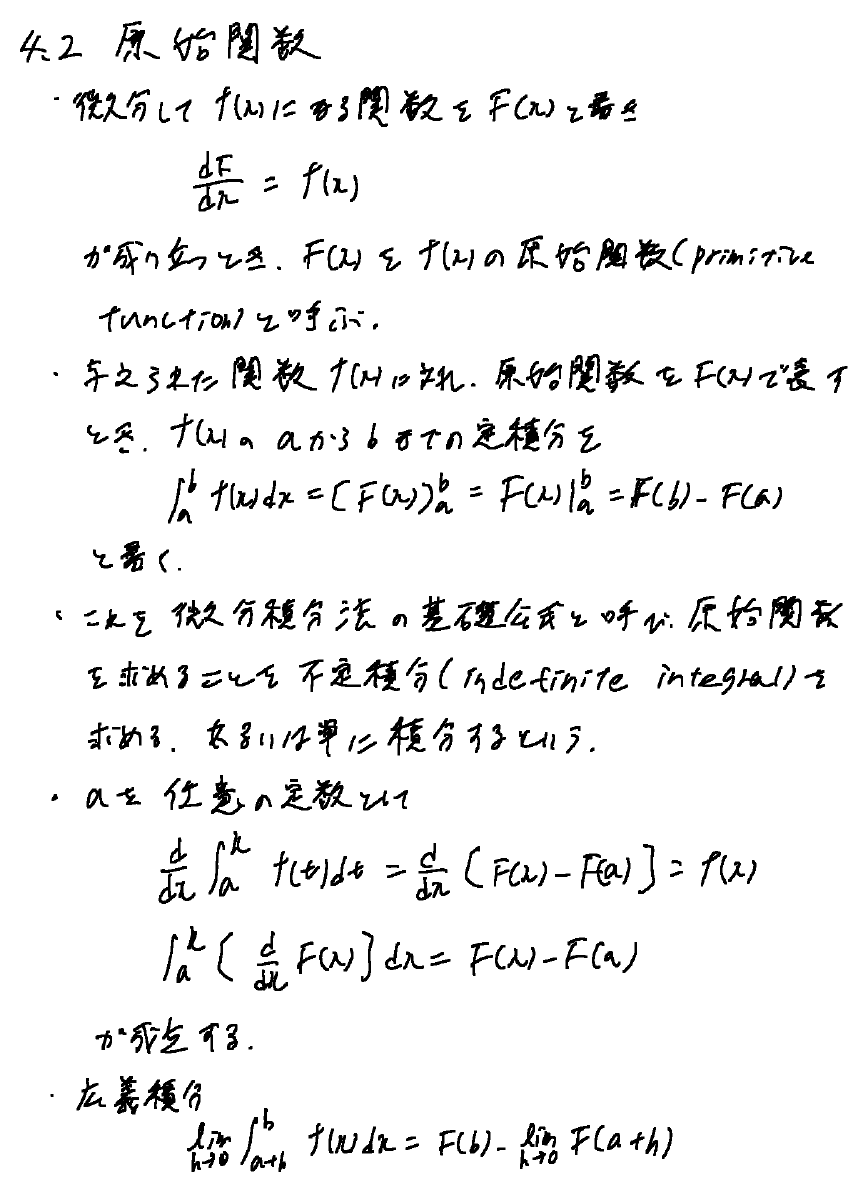 4.2 原始関数
・微分して f(x)になる関数を F(x)と書き
dF/dx = f(x)
が成り立つとき、F(x)を f(x)の原始関数(primitive
function)と呼ぶ.
・与えられた関数 f(x)に対し、原始関数を F(x)で表す
とき、f(x)の aから bまでの定積分を
∫_a^b f(x)dx = [F(x)]_a^b = F(x)|_a^b = F(b) - F(a)
と書く.
・これを 微分積分法の基礎公式と呼び、原始関数
を求めることを 不定積分(indefinite integral)を
求める、あるいは単に積分するという.
・aを 任意の定数として
d/dx ∫_a^x f(t)dt = d/dx [F(x) - F(a)] = f(x)
∫_a^x [d/dx F(x)] dx = F(x) - F(a)
が成立する.
・広義積分
lim_{h→0} ∫_{a+h}^b f(x)dx = F(b) - lim_{h→0} F(a+h)